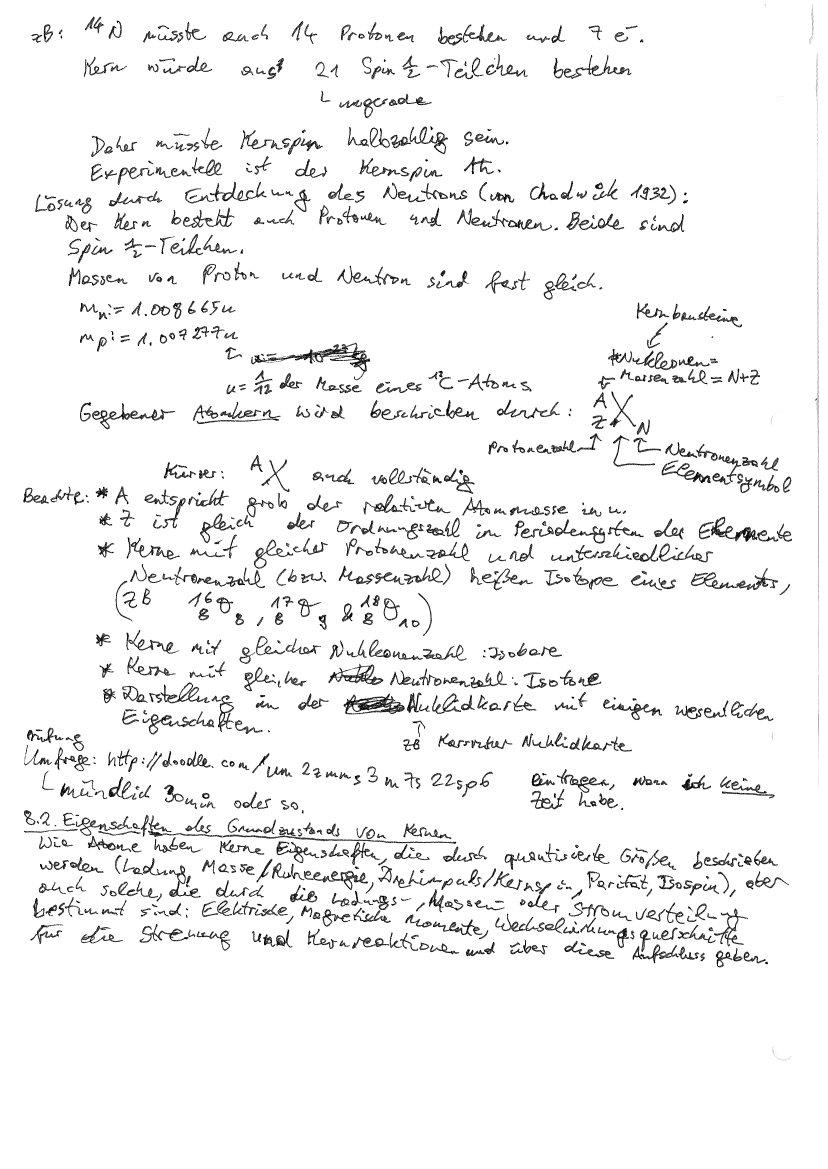 zB: ¹⁴N müsste auch 14 Protonen bestehen und 7 e⁻.
Kern würde aus 21 Spin ½-Teilchen bestehen
└ ungerade
Daher müsste Kernspin halbzahlig sein.
Experimentell ist der Kernspin 1ħ.
Lösung durch Entdeckung des Neutrons (von Chadwick 1932):
Der Kern besteht auch Protonen und Neutronen. Beide sind
Spin ½-Teilchen.
Massen von Proton und Neutron sind fast gleich.
mₙ := 1.008665u
mₚ := 1.007277u
Kernbausteine
#Nukleonen=
Massenzahl = N+Z
u = 1/12 der Masse eines ¹²C-Atoms
Gegebener Atomkern wird beschrieben durch: A Z X N
Protonenzahl
Neutronenzahl
Elementsymbol
Kürzer: ᴬX auch vollständig
Beachte: * A entspricht grob der relativen Atommasse in u.
* Z ist gleich der Ordnungszahl im Periodensystem der Elemente
* Kerne mit gleicher Protonenzahl und unterschiedlicher
Neutronenzahl (bzw. Massenzahl) heißen Isotope eines Elementes,
(zB ¹⁶₈O₈, ¹⁷₈O₉ & ¹⁸₈O₁₀)
* Kerne mit gleicher Nukleonenzahl: Isobare
* Kerne mit gleicher Neutronenzahl: Isotone
* Darstellung in der Nuklidkarte mit einigen wesentlichen
Eigenschaften.
zB Karlsruher Nuklidkarte
Prüfung
Umfrage: http://doodle.com/um2zmms3m7s22sp6 eintragen, wann ich keine
└ mündlich 30min oder so. Zeit habe.
8.2. Eigenschaften des Grundzustands von Kernen
Wie Atome haben Kerne Eigenschaften, die durch quantisierte Größen beschrieben
werden (Ladung, Masse/Ruheenergie, Drehimpuls/Kernspin, Parität, Isospin), aber
auch solche, die durch die Ladungs-, Massen- oder Stromverteilung
bestimmt sind: Elektrische, Magnetische Momente, Wechselwirkungsquerschnitte
für die Streuung und Kernreaktionen und über diese Aufschluss geben.